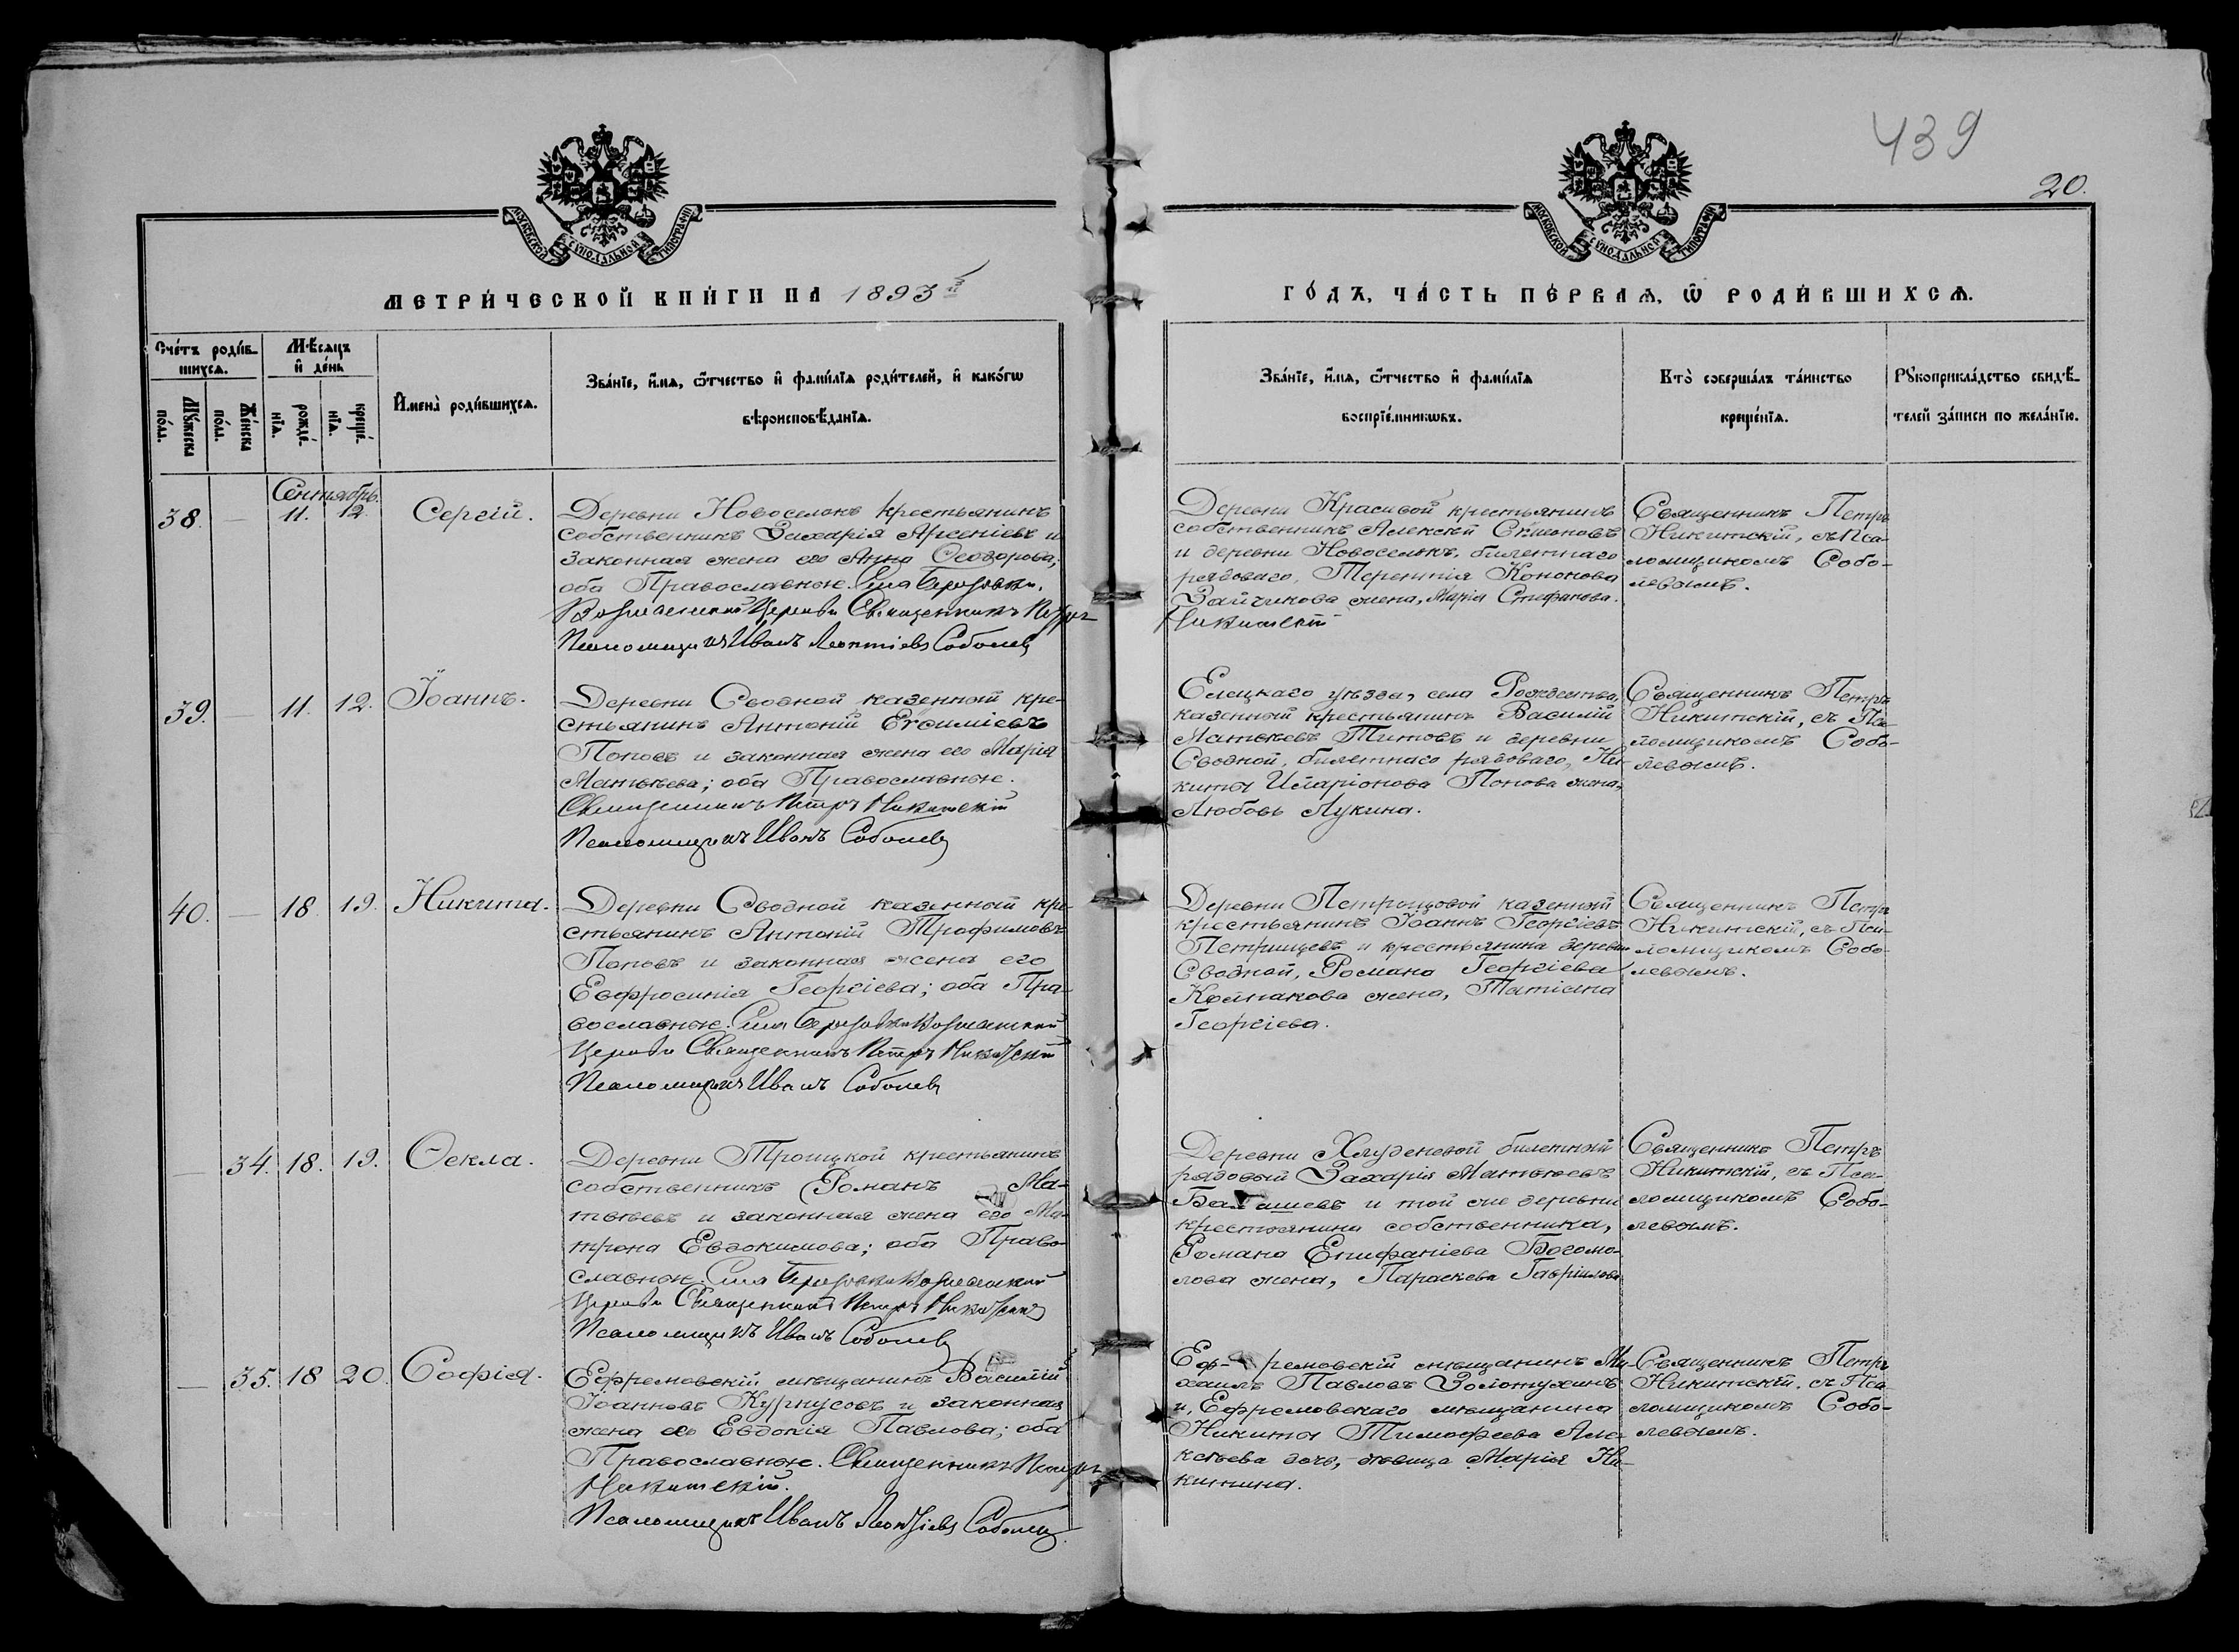 439
20.
МОСКОВСКОЙ СѴНОДАЛЬНОЙ ТИПОГРАФІИ
МОСКОВСКОЙ СѴНОДАЛЬНОЙ ТИПОГРАФІИ
МЕТРИ́ЧЕСКОЙ КНИ́ГИ НА 1893й
ГО́ДЪ, ЧА́СТЬ ПЕ́РВАѦ, Ѡ҆ РОДИ́ВШИХСѦ.
Сче́тъ роди́в-
шихсѧ.
Мꙋ́жеска
по́ла.
Же́нска
по́ла.
Мѣ́сѧцъ
и҆ де́нь
рожде́-
нїѧ.
креще́-
нїѧ.
И҆мена̀ роди́вшихсѧ.
Зва́нїе, и҆́мѧ, ѻ҆́тчество и҆ фамѝлїѧ роди́телей, и҆ како́гѡ
вѣроисповѣ́данїѧ.
Зва́нїе, и҆́мѧ, ѻ҆́тчество и҆ фамѝлїѧ
воспрїе́мникѡвъ.
Кто̀ соверша́лъ та́инство
креще́нїѧ.
Рꙋкоприкла́дство свидѣ́-
телей за́писи по жела́нїю.
Сентябрь.
38. — 11. 12. Сергій.
Деревни Новоселокъ крестьянинъ
собственникъ Захарія Арсеніевъ и
законная жена его Анна Ѳеодорова;
оба Православные. Села Березовки.
Вознесенской Церкви Священникъ Петръ
Никитскій
Псаломщикъ Иванъ Леонтіевъ Соболевъ
Деревни Красивой крестьянинъ
собственникъ Алексѣй Сѵмеоновъ
и деревни Новоселокъ, билетнаго
рядоваго, Терентія Кононова
Зайчикова жена, Марія Стефанова.
Священникъ Петръ
Никитскій, съ Пса-
ломщикомъ Собо-
левымъ.
39. — 11. 12. Іоаннъ.
Деревни Сводной казенный кре-
стьянинъ Антоній Евсиміевъ
Поповъ и законная жена его Марія
Матѳеева; оба Православные.
Священникъ Петръ Никитскій
Псаломщикъ Иванъ Соболевъ
Елецкаго уѣзда, села Рождества,
казенный крестьянинъ Василій
Матѳеевъ Титовъ и деревни
Сводной, билетнаго рядоваго, Ни-
киты Иларіонова Попова жена,
Любовь Лукина.
Священникъ Петръ
Никитскій, съ Пса-
ломщикомъ Собо-
левымъ.
40. — 18. 19. Никита.
Деревни Сводной казенный кре-
стьянинъ Антоній Трофимовъ
Поповъ и законная жена его
Евфросинія Георгіева; оба Пра-
вославные. Села Березовки Вознесенской
Церкви Священникъ Петръ Никитскій
Псаломщикъ Иванъ Соболевъ
казенный
крестьянинъ Іоаннъ Георгіевъ
Петрищевъ и крестьянина деревни
Сводной, Романа Георгіева
жена, Татіана
Георгіева.
Священникъ Петръ
Никитскій, съ Пса-
ломщикомъ Собо-
левымъ.
— 34. 18. 19. Ѳекла.
Деревни Троицкой крестьянинъ
собственникъ Романъ Ма-
тѳеевъ и законная жена его Ма-
трона Евдокимова; оба Право-
славные. Села Березовки Вознесенской
Церкви Священникъ Петръ Никитскій
Псаломщикъ Иванъ Соболевъ
Деревни Хлуденевой билетный
рядовой Захарія Матѳеевъ
и той же деревни
крестьянина собственника,
Романа Епифаніева Богомо-
лова жена, Параскева Гавріилова.
Священникъ Петръ
Никитскій, съ Пса-
ломщикомъ Собо-
левымъ.
— 35. 18 20. Софія.
Ефремовскій мѣщанинъ Василій
Іоанновъ Курнусовъ и законная
жена его Евдокія Павлова; оба
Православные. Священникъ Петръ
Никитскій.
Псаломщикъ Иванъ Леонтіевъ Соболевъ.
Еф-ремовскій мѣщанинъ Ми-
хаилъ Павловъ Золотухинъ
и, Ефремовскаго мѣщанина
Никиты Тимофеева Але-
ксѣева дочь, дѣвица Марія Ни-
китина.
Священникъ Петръ
Никитскій, съ Пса-
ломщикомъ Собо-
левымъ.